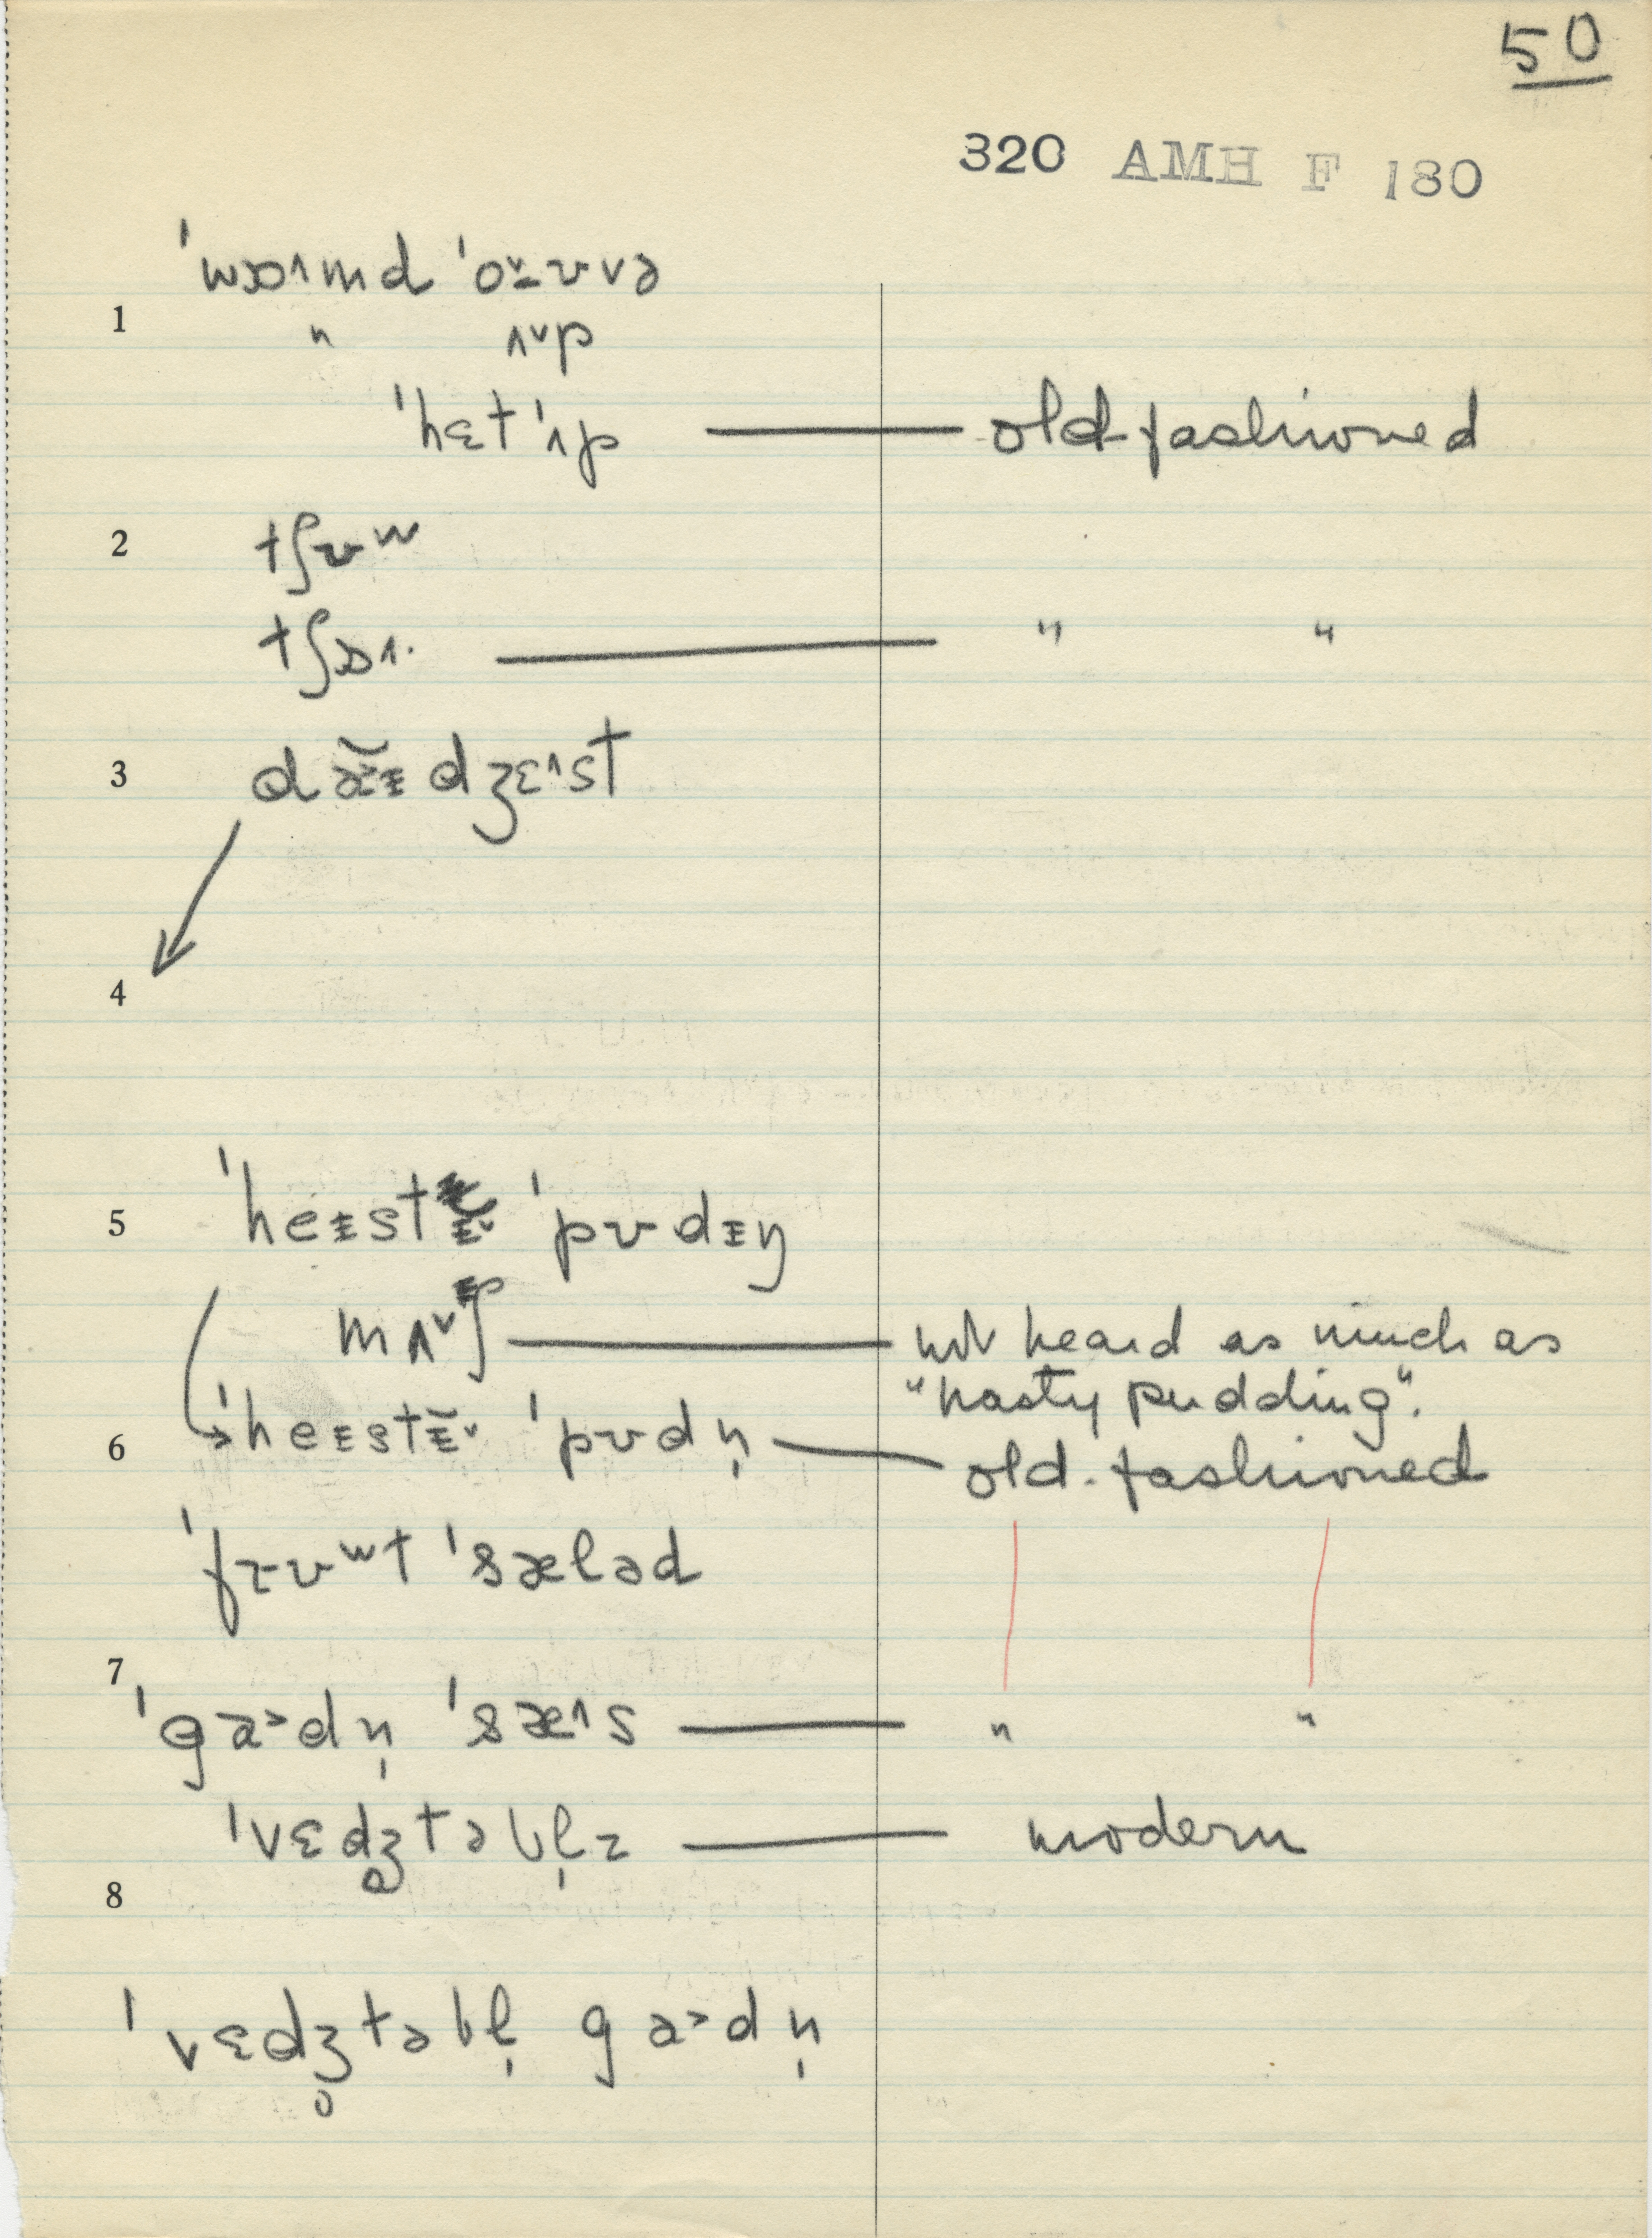 50
320 AMH F 180
ˈwɒ˄md ˈo̠˅ʊvə
1
" ʌ˅p
ˈhɛt ˈʌp — old-fashioned
2
tʃʊʷ
tʃɒ˄· — " "
3
daɨdʒɛ˄st
4
5
ˈheɨstɨ˅ ˈpʊdɨŋ
mʌ˅ʃ — not heard as much as
"hasty pudding".
6
ˈheɨstɨ̆˅ ˈpʊdn̩ — old-fashioned
ˈfrʊʷt ˈsæləd
7
ˈga˃dn̩ ˈsæ˄s — " "
ˈvɛdʒ̥təbl̩z — modern
8
ˈvɛdʒ̥təbl̩ ga˃dn̩